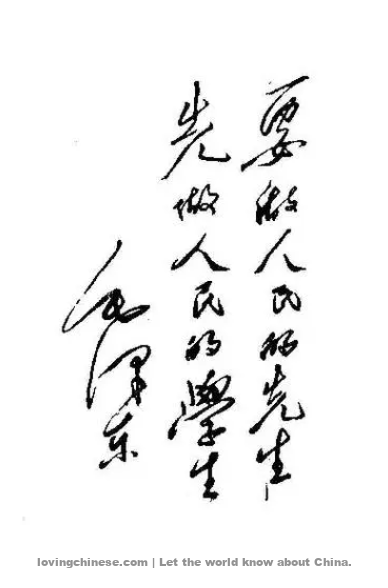 要做人民的先生
先做人民的學生
毛泽东
lovingchinese.com | Let the world know about China.